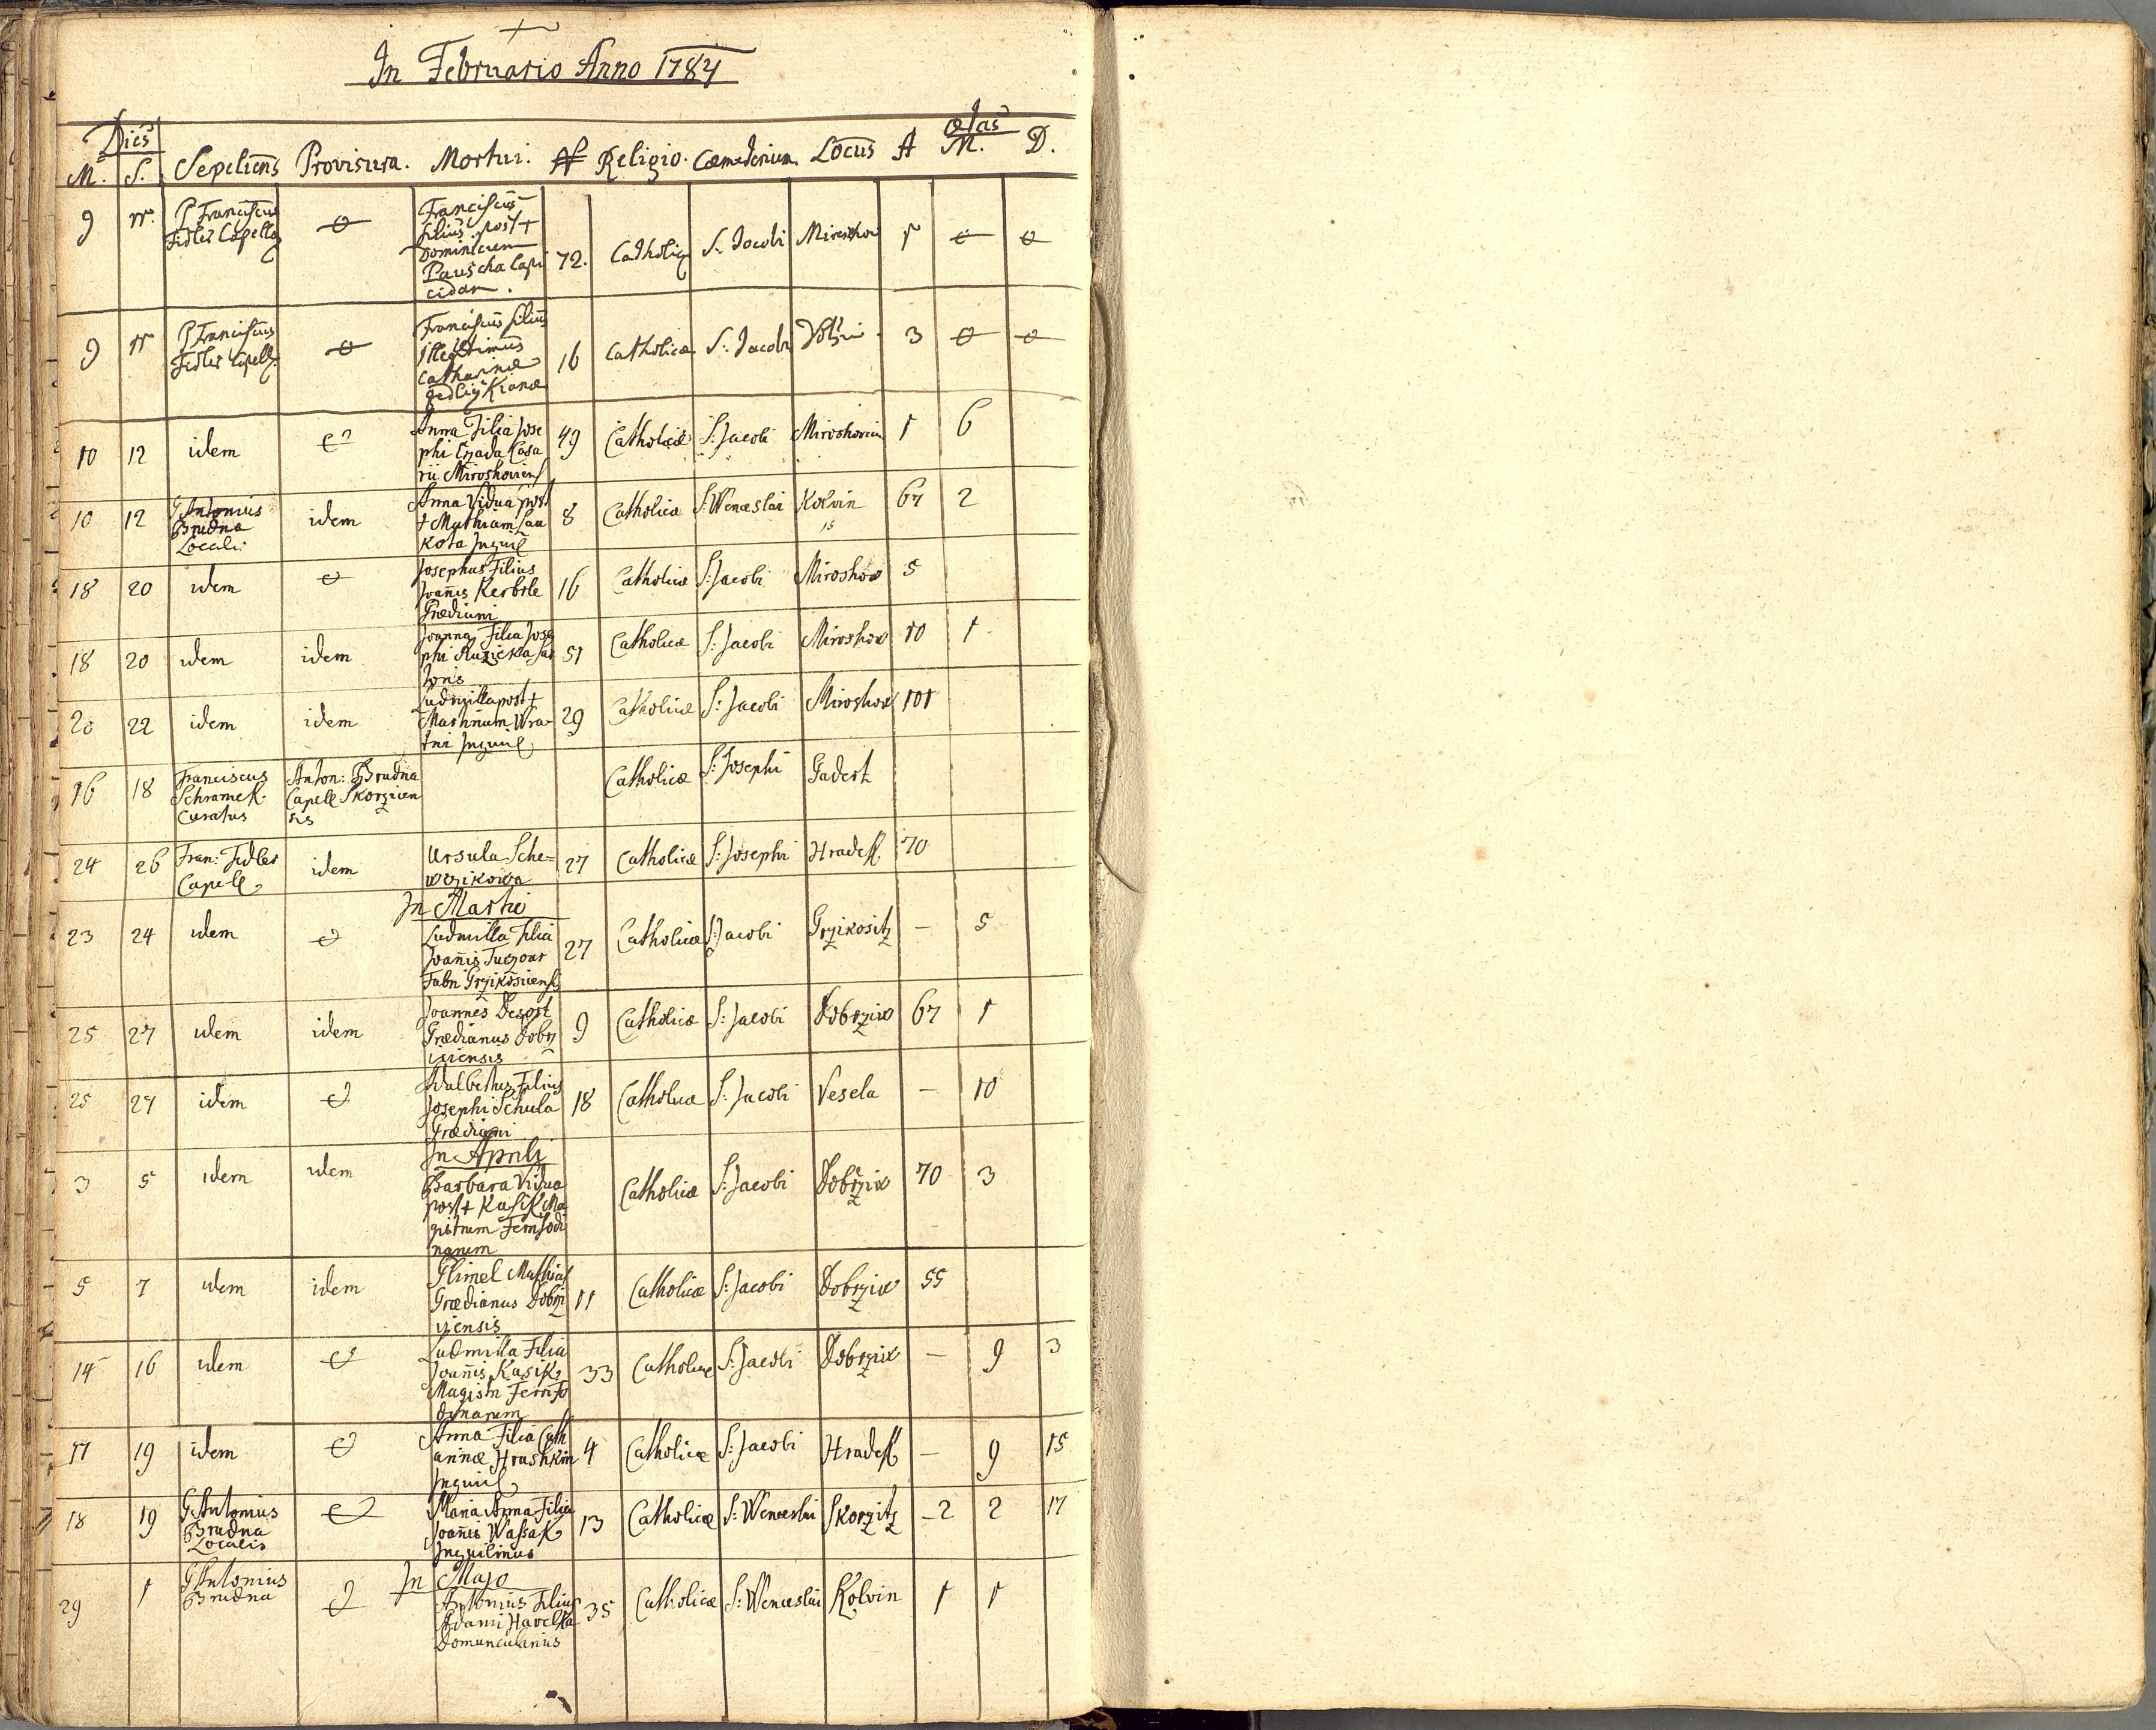 In Februario Anno 1784
Dies ætas
M. S. Sepeliens Provisura. Mortui. N Religio. Cæmeterium. Locus A M. D.
9 11. P Franciscus
Fidler Capella
Franciscus
filius post +
Dominicum
Pauscha Lapi
cidam.
72. Catholic S. Jacobi Miroschow 1
9 11 P Franciscus
Fidler Capell.
Franciscus filius
illegitimus
Catharinæ
16 Catholicæ S: Jacobi 3
10 12 idem
Anna Filia Jose
phi Czada Casa
rii Miroshoviens
49 Catholicæ S: Jacobi 1 6
10 12 P Antonius
Brudna
Locali
idem
Anna Vidua post
+ Mathiam Lau
kota Inquil
8 Catholicæ S: Wenceslai Kolvin
15
67 2
18 20 idem
Josephus Filius
Joañis Kerbele
Prædiani
16 Catholicæ S: Jacobi Miroshow 5
18 20 idem idem
Joanna Filia Jose
phi Ruzicka Sar
toris
51 Catholicæ S: Jacobi Miroshow 10 1
20 22 idem idem
Ludmilla post +
Martinum Wra-
tni Inquil
29 Catholicæ S: Jacobi Miroshow 101
16 18 Franciscus
Schramek
Curatus
Anton: Brudna
Capell Skorzicen
sis
Catholicæ S: Josephi
24 26 Fran: Fidler
Capell
idem
Ursula Sche-
wczikowa
27 Catholicæ S: Josephi Hradek 70
In Martio
23 24 idem
Ludmilla Filia
Joañis
Fabri
27 Catholicæ S: Jacobi — 5
25 27 idem idem
Joannes Desort
Prædianus Dobrz
iviensis
9 Catholicæ S: Jacobi Dobrziw 67 1
25 27 idem
Adalbertus Filius
Josephi Schula
Prædiani
18 Catholicæ S: Jacobi Vesela — 10
In Aprili
3 5 idem idem
Barbara Vidua
post + Kasik Ma
gistrum Ferrifodi
narum
Catholicæ S: Jacobi Dobrziw 70 3
5 7 idem idem
Glimel Mathias
Prædianus Dobrz
iviensis
11 Catholicæ S: Jacobi Dobrziw 55
14 16 idem
Ludmilla Filia
Joañis Kasik
Magistri Ferrifo
dinarum
33 Catholicæ S: Jacobi Dobrziw — 9 3
17 19 idem
Anna Filia Cath
arinæ Hrashkin
Inquil
4 Catholicæ S: Jacobi Hradek — 9 15
18 19 P Antonius
Brudna
Localis
Maria Anna Filia
Joañis Wassak
Inquilinus
13 Catholicæ S: Wenceslai Skorzitz 2 2 17
In Majo
29 1 P Antonius
Brudna
Antonius Filius
Adami Havelka
Domuncularius
35 Catholicæ S: Wenceslai Kolvin 1 1